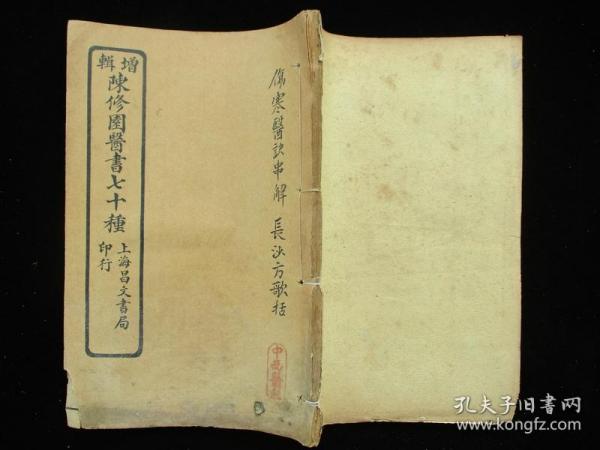 增輯
陳修園醫書七十種
上海昌文書局
印行
傷寒醫訣串解 長沙方歌括
孔夫子旧书网
www.kongfz.com